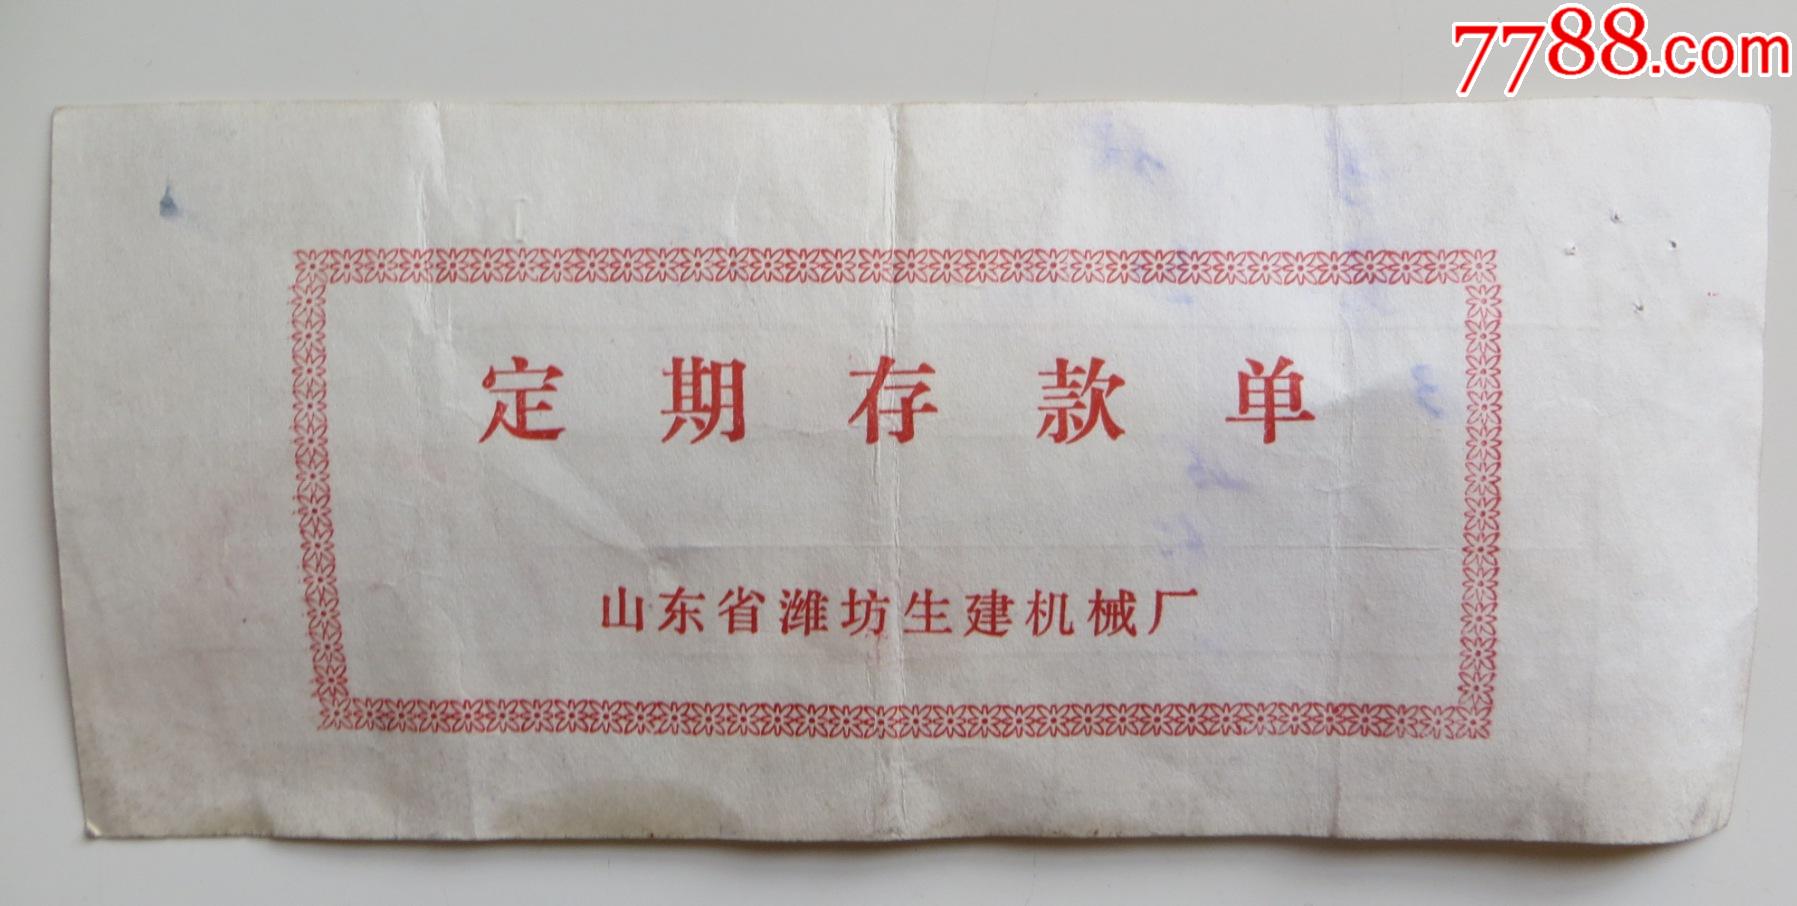 7788.com
定期存款单
山东省潍坊生建机械厂